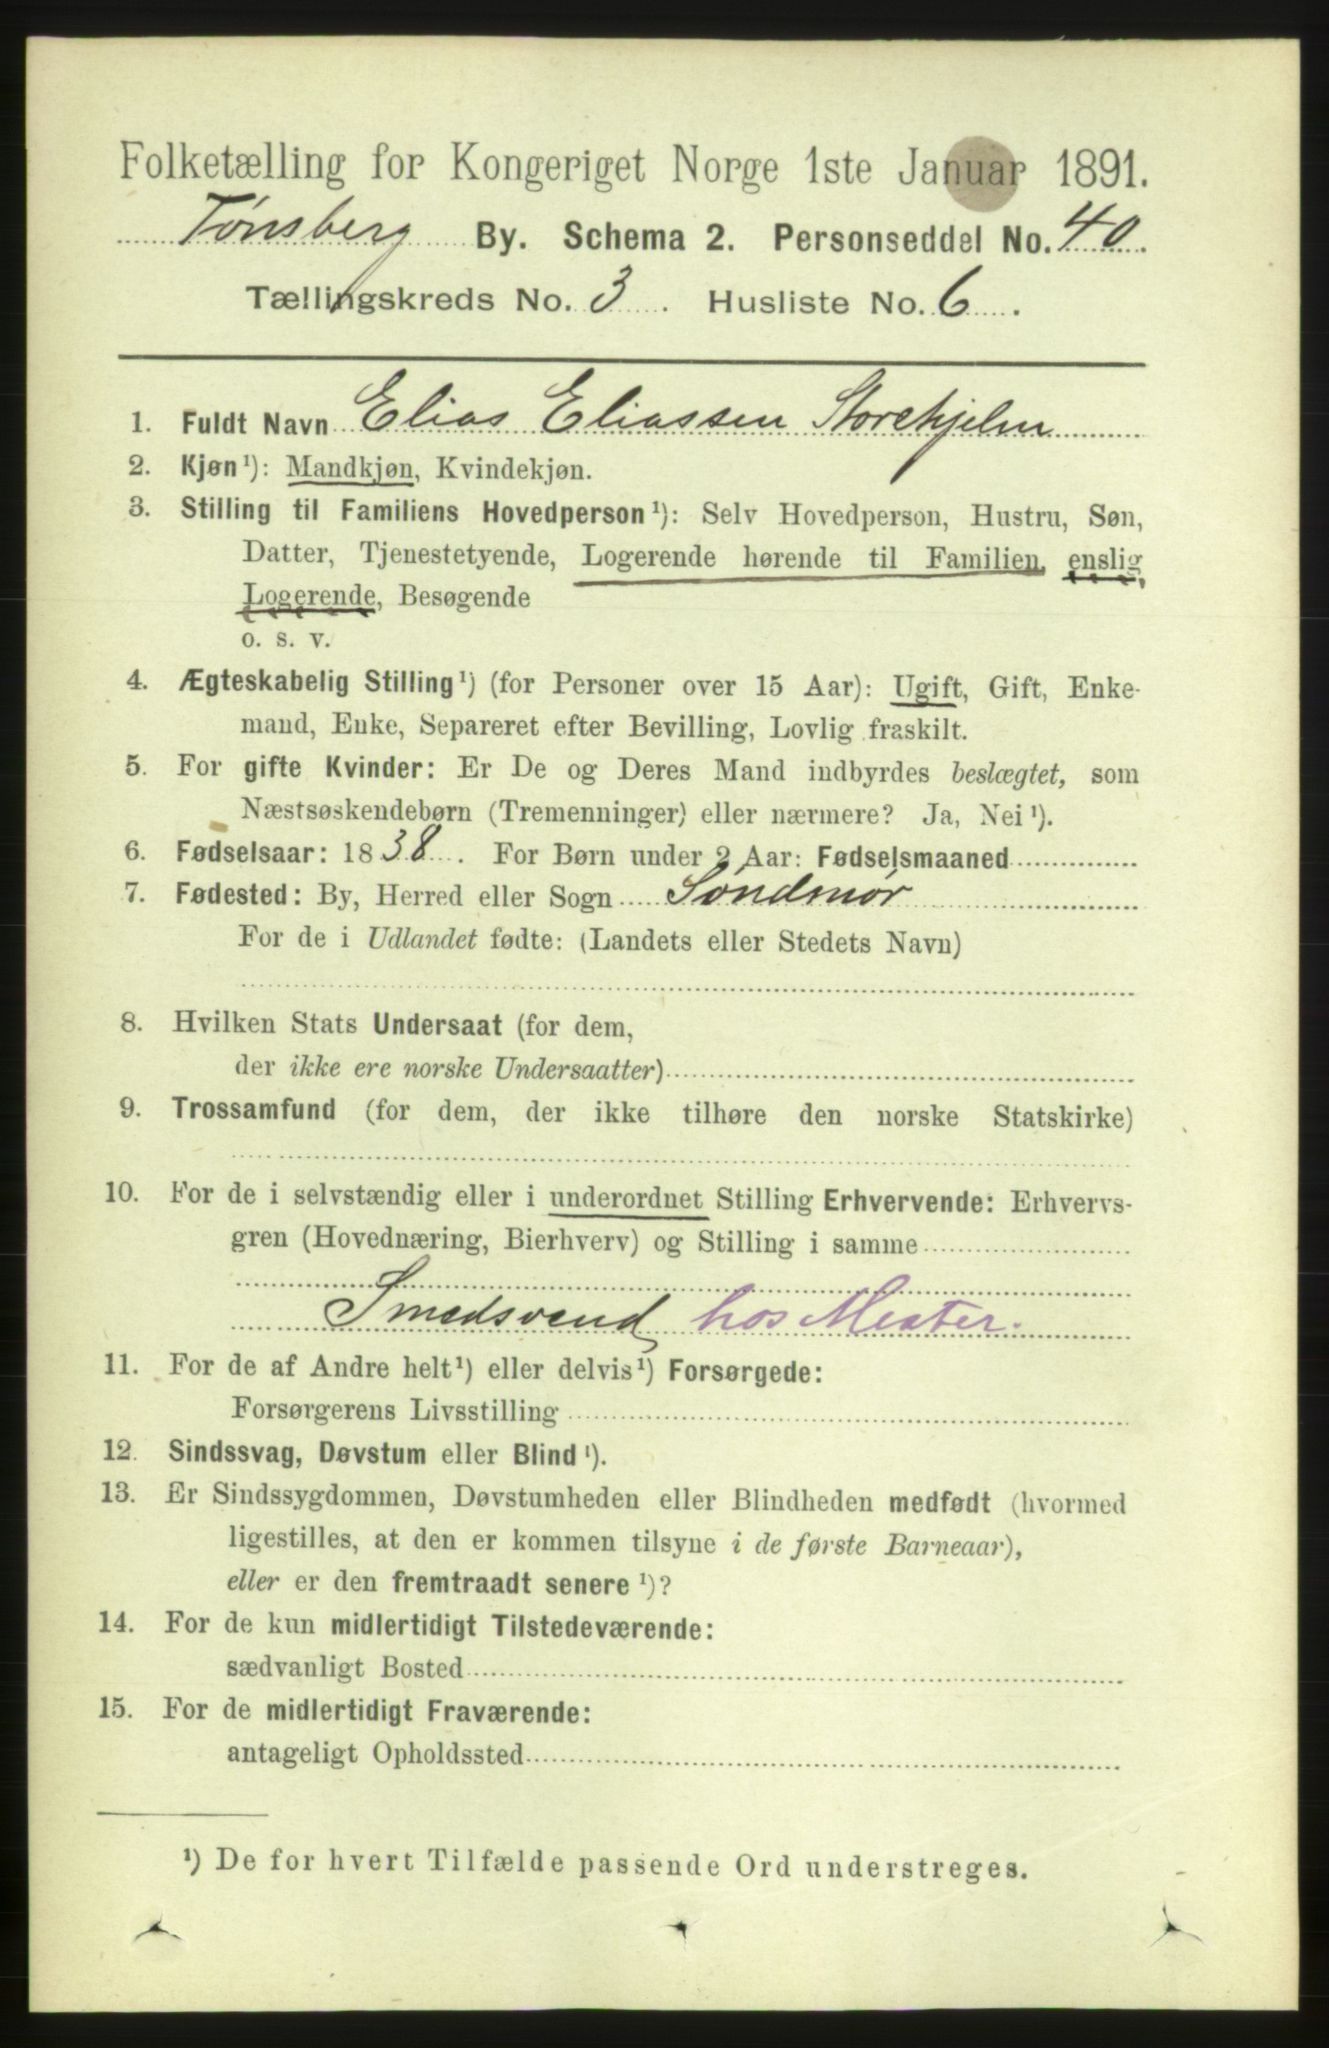 Folketælling for Kongeriget Norge 1ste Januar 1891.
Tønsberg By. Schema 2. Personseddel No. 40.
Tællingskreds No. 3. Husliste No. 6.
1. Fuldt Navn Elias Eliassen Storehjelm
2. Kjøn¹): Mandkjøn, Kvindekjøn.
3. Stilling til Familiens Hovedperson¹): Selv Hovedperson, Hustru, Søn,
Datter, Tjenestetyende, Logerende hørende til Familien, enslig
Logerende, Besøgende
o. s. v.
4. Ægteskabelig Stilling¹) (for Personer over 15 Aar): Ugift, Gift, Enke-
mand, Enke, Separeret efter Bevilling, Lovlig fraskilt.
5. For gifte Kvinder: Er De og Deres Mand indbyrdes beslægtet, som
Næstsøskendebørn (Tremenninger) eller nærmere? Ja, Nei¹).
6. Fødselsaar: 1838. For Børn under 2 Aar: Fødselsmaaned
7. Fødested: By, Herred eller Sogn Söndmör
For de i Udlandet fødte: (Landets eller Stedets Navn)
8. Hvilken Stats Undersaat (for dem,
der ikke ere norske Undersaatter)
9. Trossamfund (for dem, der ikke tilhøre den norske Statskirke)
10. For de i selvstændig eller i underordnet Stilling Erhvervende: Erhvervs-
gren (Hovednæring, Bierhverv) og Stilling i samme
Smedsvend hos Mester.
11. For de af Andre helt¹) eller delvis¹) Forsørgede:
Forsørgerens Livsstilling
12. Sindssvag, Døvstum eller Blind¹).
13. Er Sindssygdommen, Døvstumheden eller Blindheden medfødt (hvormed
ligestilles, at den er kommen tilsyne i de første Barneaar),
eller er den fremtraadt senere¹)?
14. For de kun midlertidigt Tilstedeværende:
sædvanligt Bosted
15. For de midlertidigt Fraværende:
antageligt Opholdssted
¹) De for hvert Tilfælde passende Ord understreges.